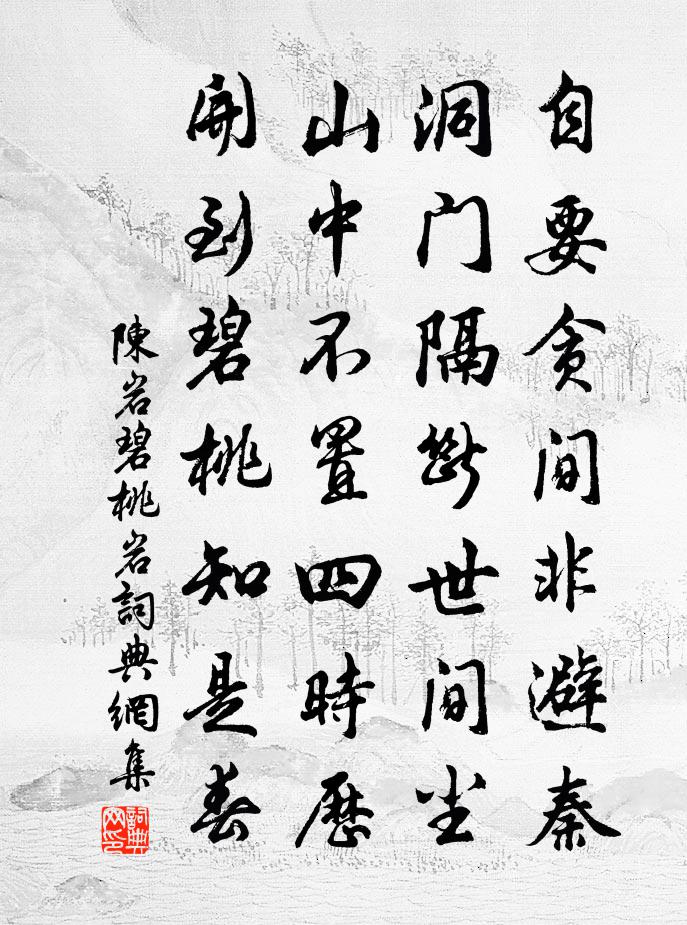 自要贪间非避秦
洞门隔断世间尘
山中不置四時歷
開到碧桃知是春
陳岩碧桃岩詞典網集
詞典网印